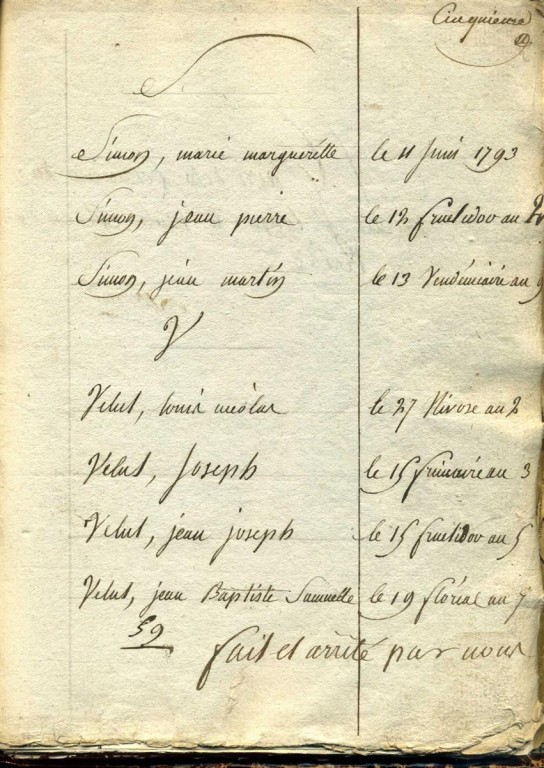 Cinquieme
S
Simon, marie margueritte le 11 Juin 1793
Simon, jean pierre le 12 fructidor an 2
Simon, jean martin le 13 Vendémiaire an 9
V
Velut, louis nicolas le 27 Nivose an 2
Velut, Joseph le 15 frimaire an 3
Velut, jean joseph le 15 fructidor an 5
Velut, jean Baptiste le 19 floréal an 7
59
fait et arrêté par nous